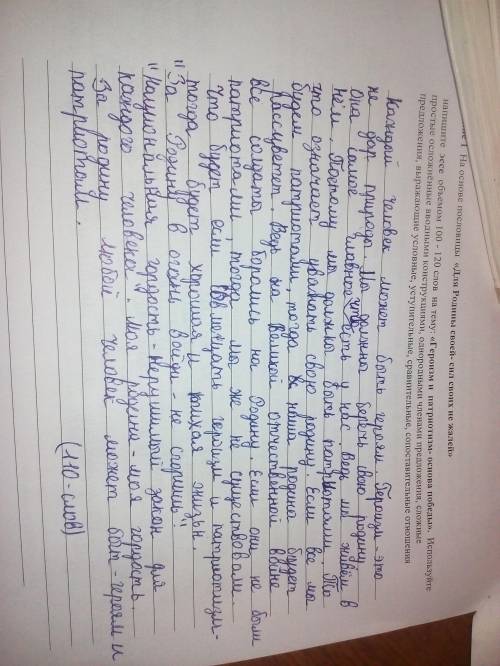 1 На основе пословицы «Для Родины своей- сил своих не жалей»
напишите эссе объемом 100 - 120 слов на тему: «Героизм и патриотизм- основа победы». Используйте
простые осложнённые вводными конструкциями, однородными членами предложения, сложные
предложения, выражающие условные, уступительные, сравнительные, сопоставительные отношения
Каждый человек может быть героям. Героизм - это
не дар природа. Мы должны беречь свою родину.
Она самое главное что есть у нас. Ведь мы живём в
нём. Поэтому мы должны быть патриотами. То
это означает уважать свою родину. Если все мы
будем патриотами, тогда и наша родина будет
рассцветет. Ведь на Великой отечественной войне
все солдаты боролись на Родину. Если они не были
патриотами, тогда мы же не существовали.
Что будет если соблюдать героизм и патриотизм-
тогда будет хорошая и тихая жизьн.
"За Родину в огонь войди - не сгоришь"
"Национальная гордость - нерушимый закон для
каждого человека. Моя родина - моя гордость.
За родину любой человек может быт - героям и
патриотом.
(110-слов)